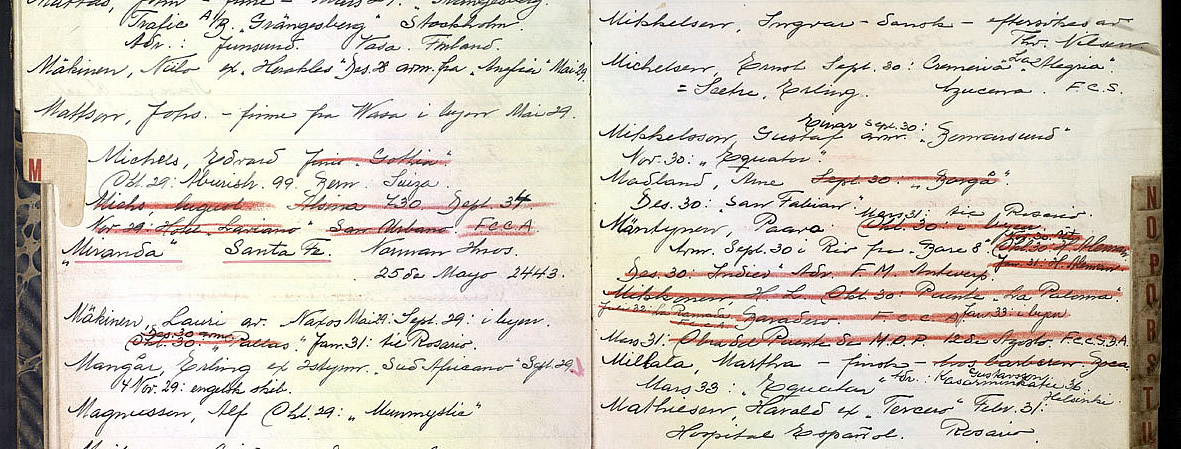 Trafic A/B "Grängesberg" Stockholm.
Adr.: Vasa. Finland.
Mäkinen, Niilo ex "Herakles" Des. 28 arm. fra "Anglia" Mai 29.
Mattson, Johs. - finne fra Wasa i byen Mai 29.
M
Michels, Edvard finn "Gothia"
Okt. 29: 99 Bern. Suiza.
Michs, August Alsina 730 Sept. 34
Nov. 29: Hotel San Urbano F.C.C.A
"Miranda" Santa Fe. Norman Hnos.
25 de Mayo 2443.
Mäkinen, Lauri av. Naxos Mai 29: Sept. 29: i byen.
Okt. 30: "Pallas" Jan. 31: til Rosario.
Mangår, Erling ex "Sud Africano" Sept. 29
4 Nov. 29: engelsk skib.
Magnusson, Alf Okt. 29: "Munmystic"
Mikkelsen, Ingvar - dansk - eftersökes av
Thv. Nilsen
Michelsen, Ernst Sept. 30: "Alegria".
= Saetre, Erling. Azucena. F.C.S.
Einar Sept. 30:
Mikkelsson, Gustaf arm. "Bomarsund"
Nov. 30: "Equator".
Madland, Arne Sept. 30: "Borgå".
Des. 30: "San Fabian".
Mars 31: til Rosario.
Mäntynen, Paavo. Okt. 30: i byen.
Arm. Sept. 30 i Rio fra "Bore 8"
Des. 30: "Indier" Adr. F. M. Antwerp.
Mikkonen, H. L. Okt. 30: Puente "La Paloma"
Baradero. F.C.C.A Jan 33: i byen
Mars 31: Obra del Puente de M.O.P. 12 de Agosto. F.C.C.B.A.
Milkata, Martha - finsk -
Gustavson
Mars 33: "Equator" Adr.: Kasarminkatu 36.
Helsinki.
Mathiesen, Harald ex "Tercero" Febr. 31:
Hospital Español. Rosario
N
O
P
Q
R
S
T
U